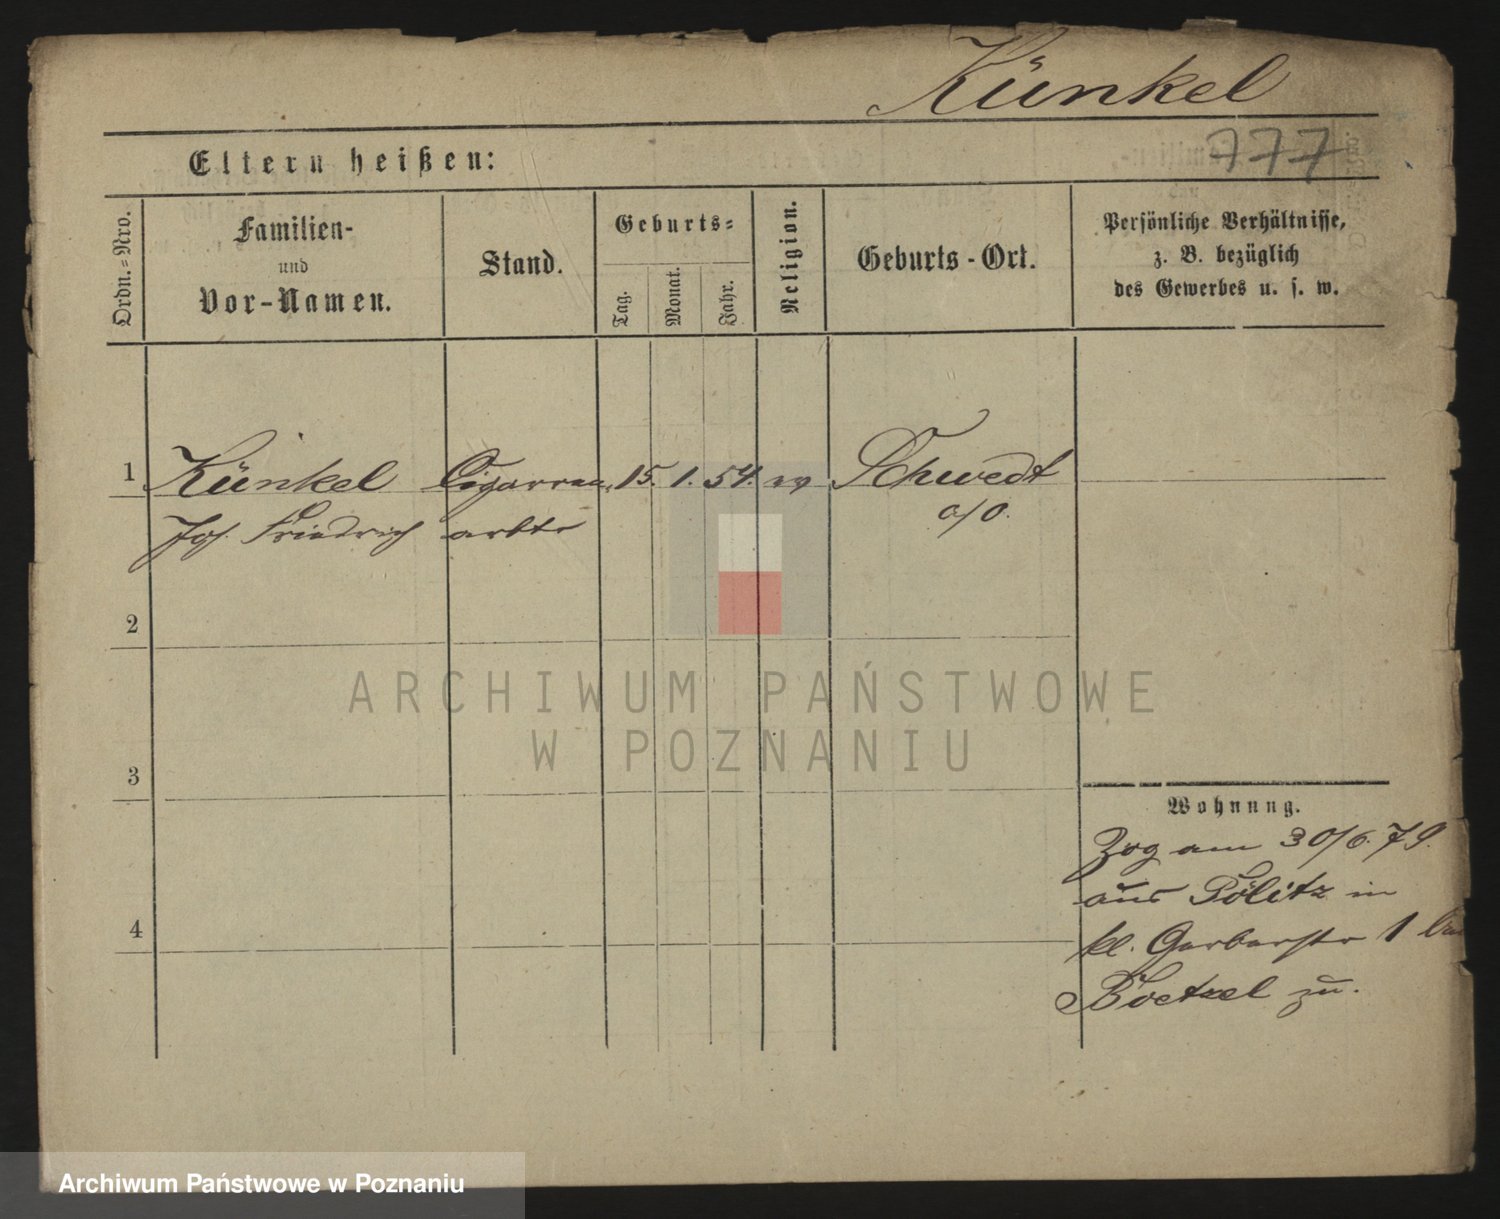 Künkel
777
Eltern heißen:
Ordn.=Nro.
Familien-
und
Vor-Namen.
Stand.
Geburts=
Tag.
Monat.
Jahr.
Religion.
Geburts-Ort.
Persönliche Verhältnisse,
z. B. bezüglich
des Gewerbes u. s. w.
1 Künkel Cigarren 15. 1. 54. ev Schwedt
Friedrich arbtr a/O.
2
3
4
Wohnung.
Zog am 30/6. 79.
aus Pölitz in
kl. Gerberstr 1
Boetzel zu.
ARCHIWUM PAŃSTWOWE
W POZNANIU
Archiwum Państwowe w Poznaniu